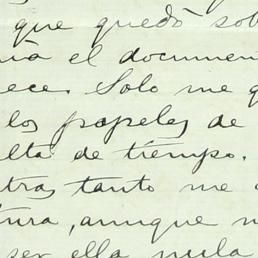 que quedó sob
ia el documen
ece. Solo me q
los papeles de
lta de tiempo.
tras tanto me
tura, aunque n
ser ella nula